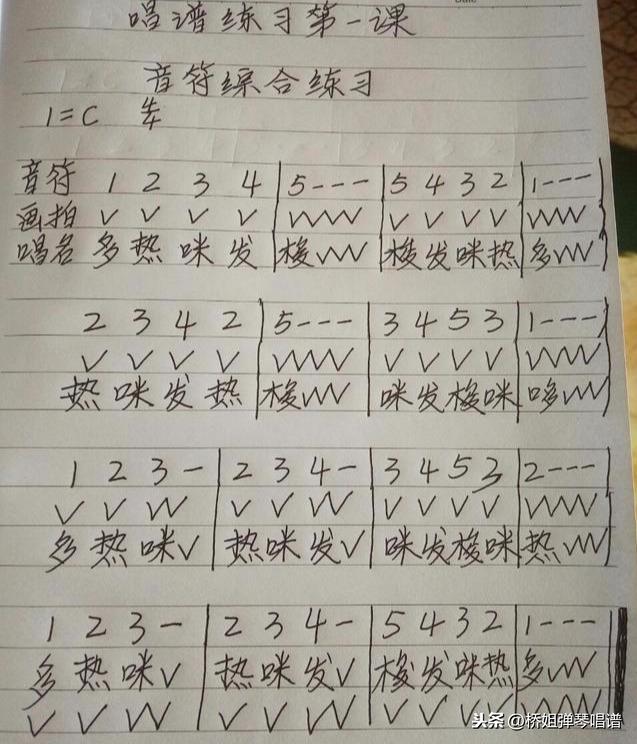 唱谱练习第一课
音符综合练习
1=C 4/4
音符 1 2 3 4 | 5--- | 5 4 3 2 | 1--- |
画拍 ∨ ∨ ∨ ∨ | ∨∨∨∨ | ∨ ∨ ∨ ∨ | ∨∨∨∨ |
唱名 多 热 咪 发 | 梭∨∨∨ | 梭发咪热 | 多∨∨∨ |
2 3 4 2 | 5--- | 3 4 5 3 | 1--- |
∨ ∨ ∨ ∨ | ∨∨∨∨ | ∨ ∨ ∨ ∨ | ∨∨∨∨ |
热 咪 发 热 | 梭∨∨∨ | 咪发梭咪 | 哆∨∨∨ |
1 2 3 - | 2 3 4 - | 3 4 5 3 | 2--- |
∨ ∨ ∨∨ | ∨ ∨ ∨∨ | ∨ ∨ ∨ ∨ | ∨∨∨∨ |
多 热 咪∨ | 热咪发∨ | 咪发梭咪 | 热∨∨∨ |
1 2 3 - | 2 3 4 - | 5 4 3 2 | 1--- ||
多 热 咪∨ | 热咪发∨ | 梭发咪热 | 多∨∨∨ ||
∨ ∨ ∨∨ | ∨ ∨ ∨∨ | ∨ ∨ ∨ ∨ | ∨∨∨∨ ||
头条 @桥姐弹琴唱谱